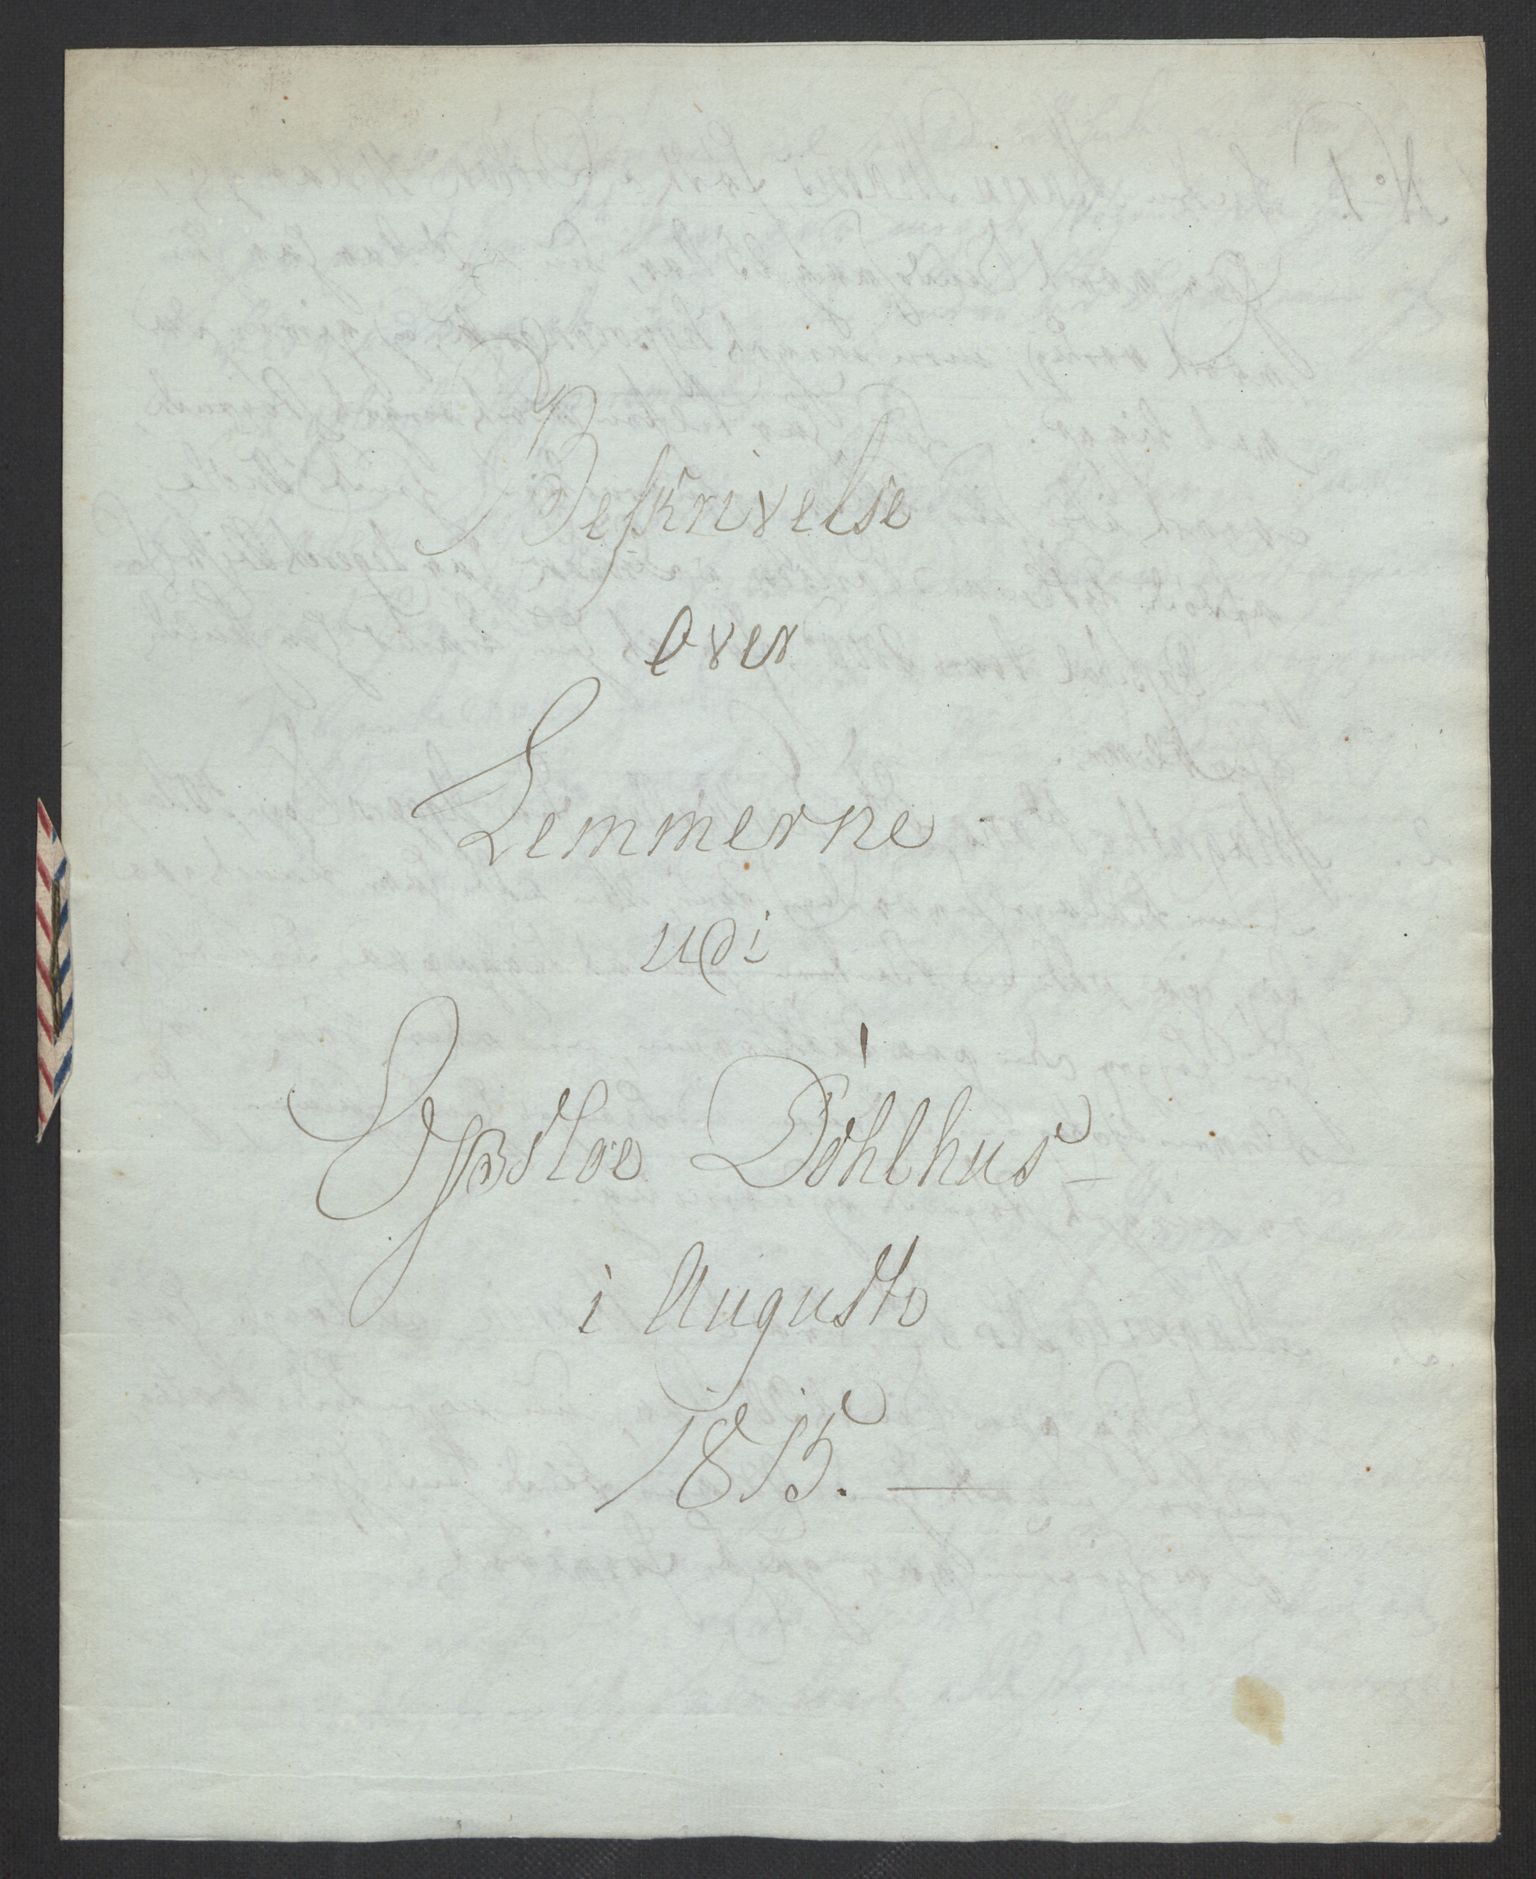 Beskrivelse
over
Lemmerne
udi
Opsloe Dohlhus
i Augusto
1815.